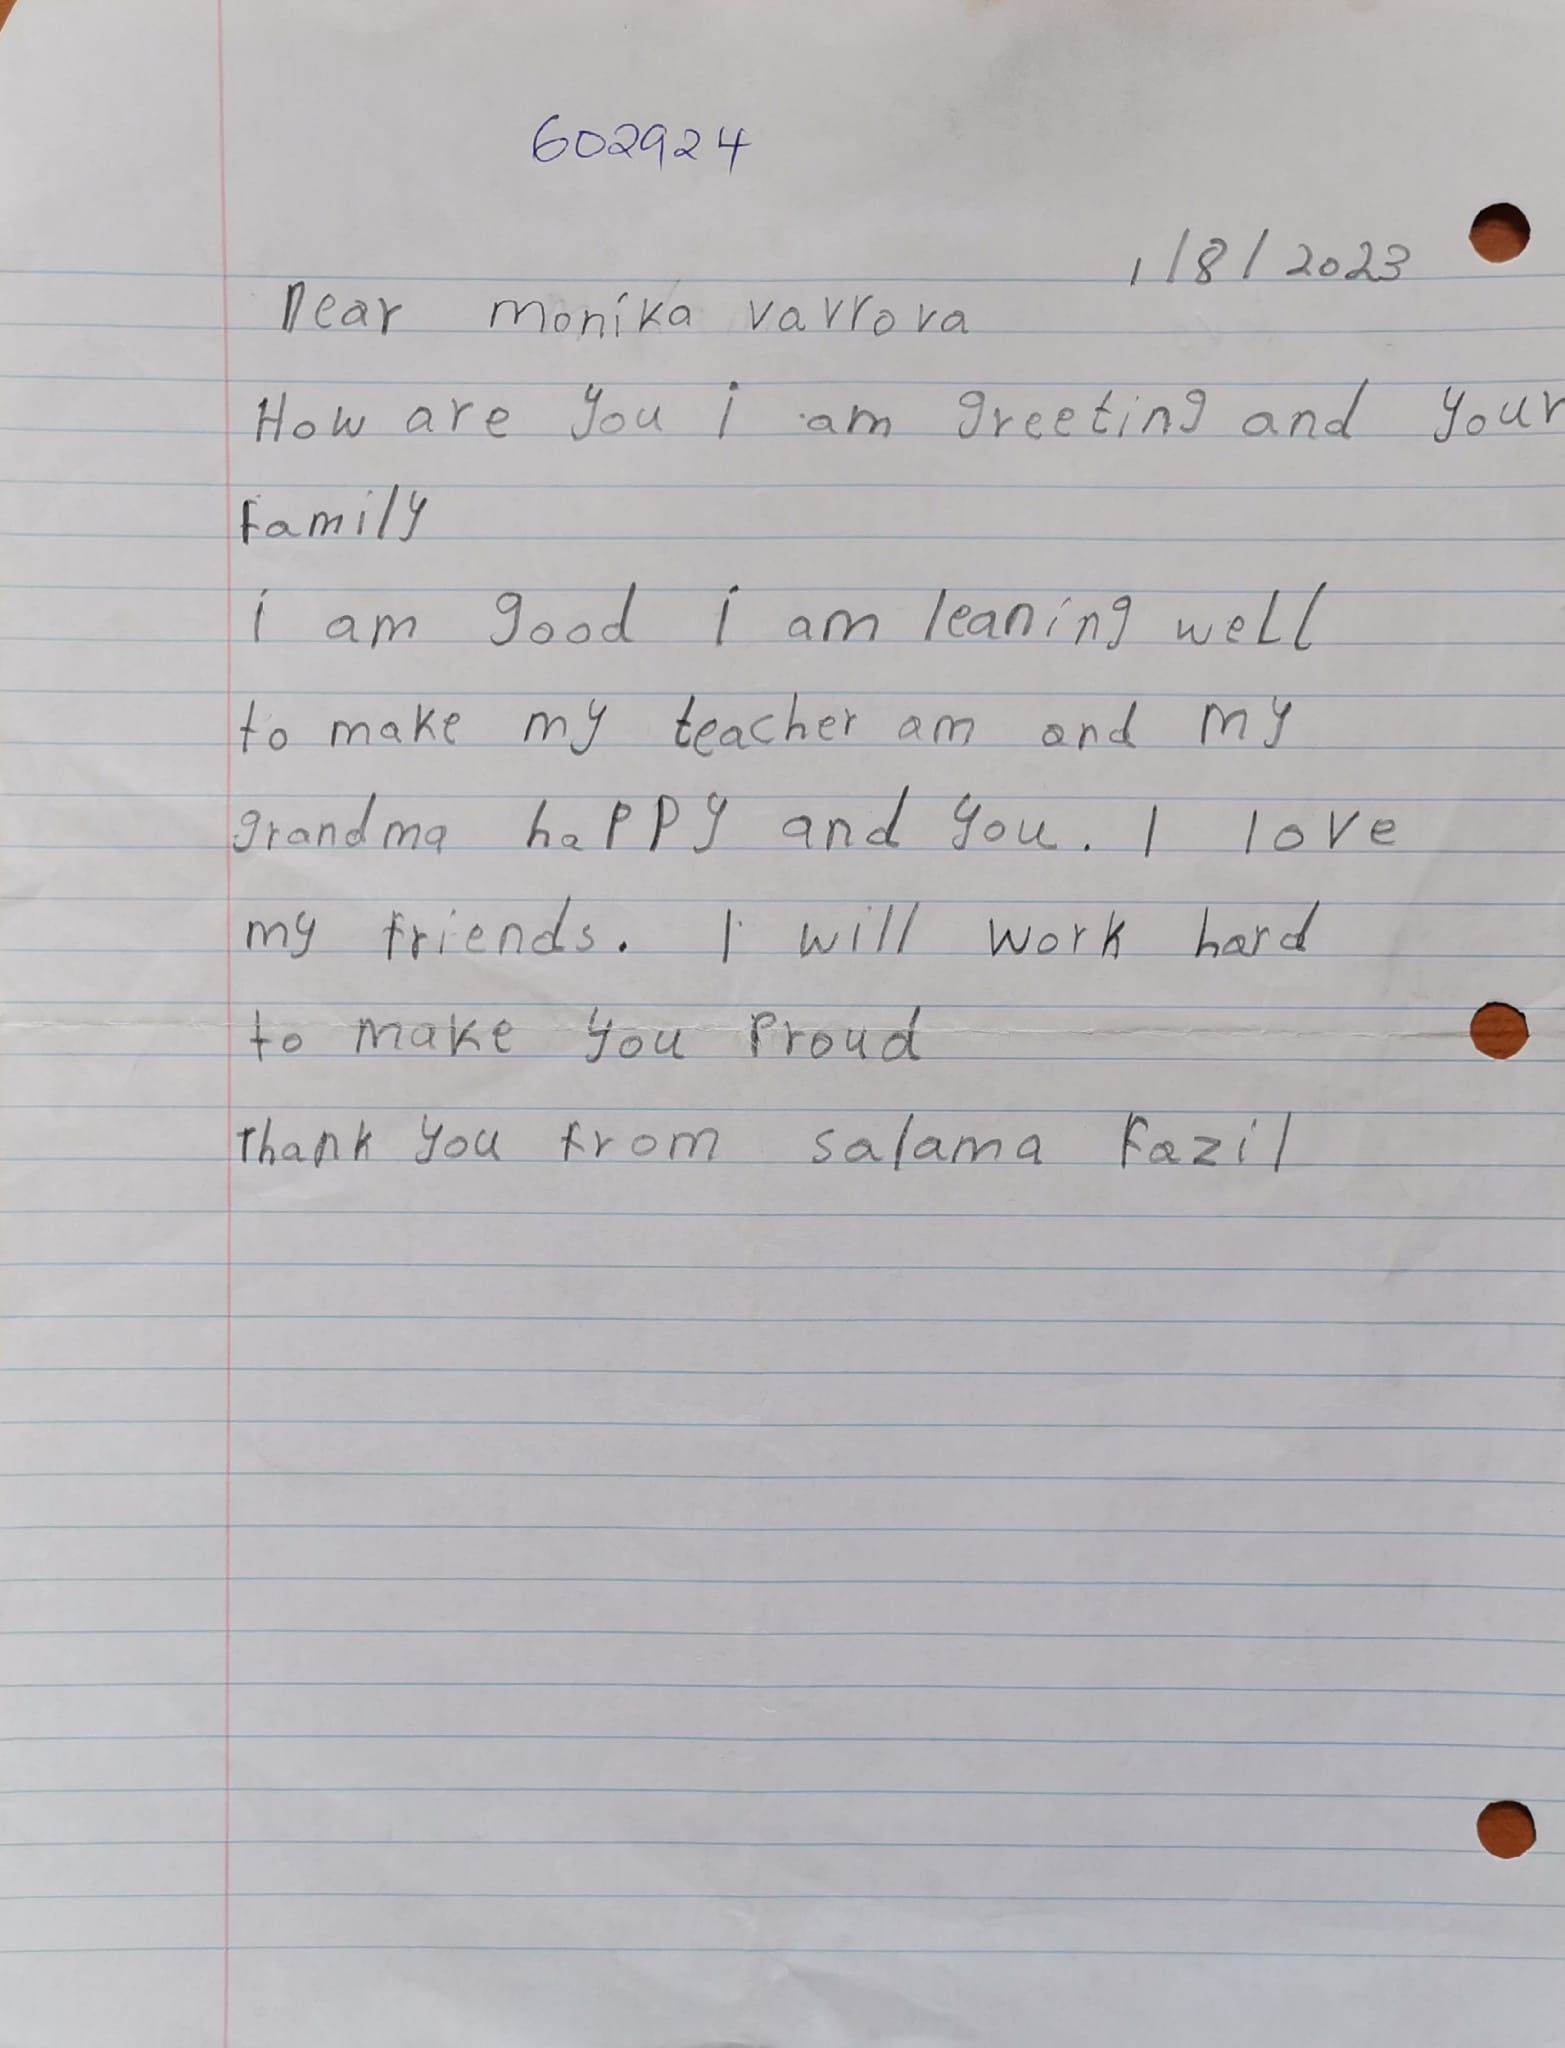 602924
1/8/2023
Dear monika vavrova
How are you i am greeting and your
family
i am good i am leaning well
to make my teacher am and my
grandma happy and you. I love
my friends. I will work hard
to make you Proud
Thank you from salama Fazil